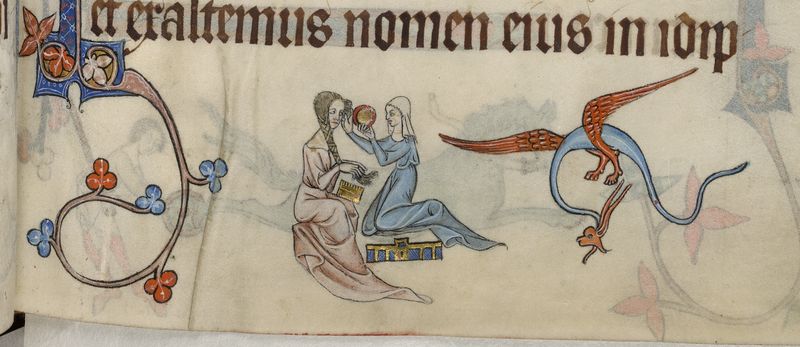 et exaltemus nomen eius in idip